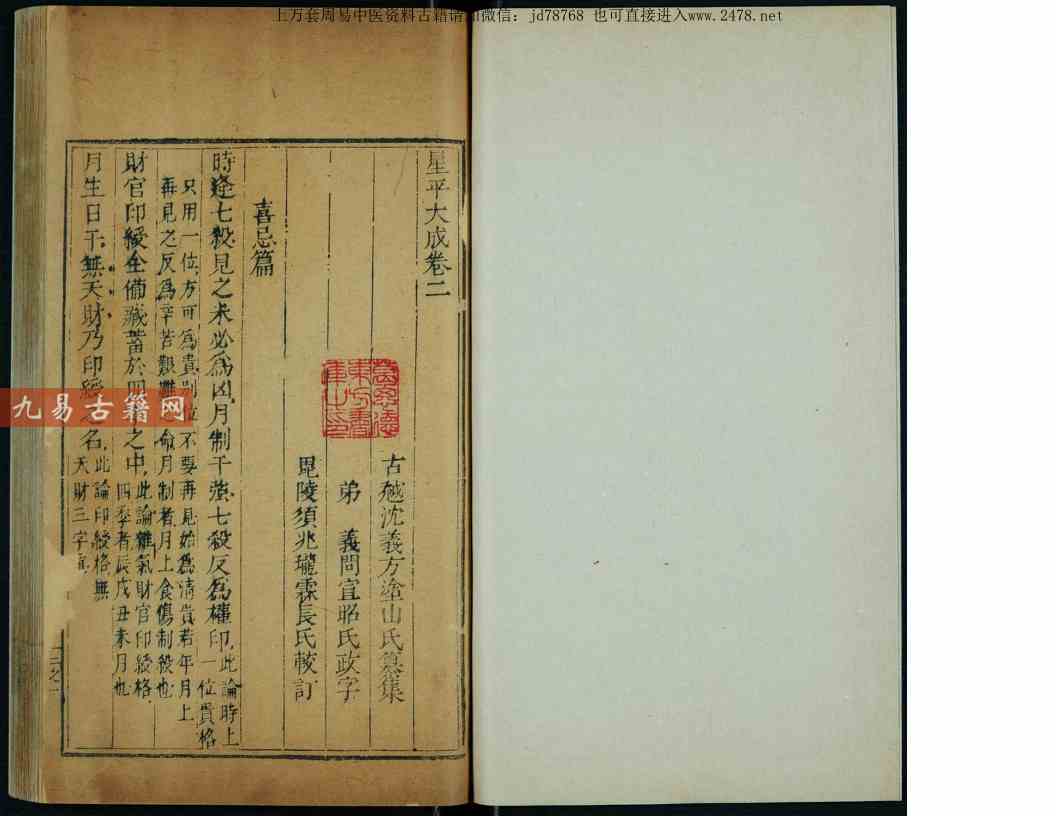 上万套周易中医资料古籍请加微信：jd78768 也可直接进入www.2478.net
星平大成卷二
古越沈義方塗山氏纂集
弟 義問宣昭氏政字
毘陵須兆瓏霖長氏較訂
喜忌篇
時逢七殺見之未必為凶月制干強七殺反為權印此論時上一位貴格
只用一位方可為貴別位不要再見始為清貴若年月上
再見之反為辛苦艱難之命月制者月上食傷制殺也
財官印綬全備藏蓄於四季之中此論雜氣財官印綬格四季者辰戌丑未月也
月生日干無天財乃印綬之名此論印綬格無天財三字
二之一
九易古籍网